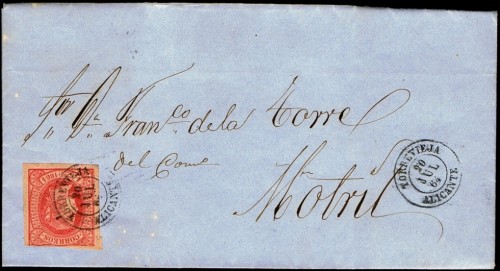 Sr. Dn. Franco. de la Torre
del Come
Motril
TORREVIEJA
20
JUL
64
ALICANTE
TORREVIEJA
20
JUL
ALICANTE
CORREOS